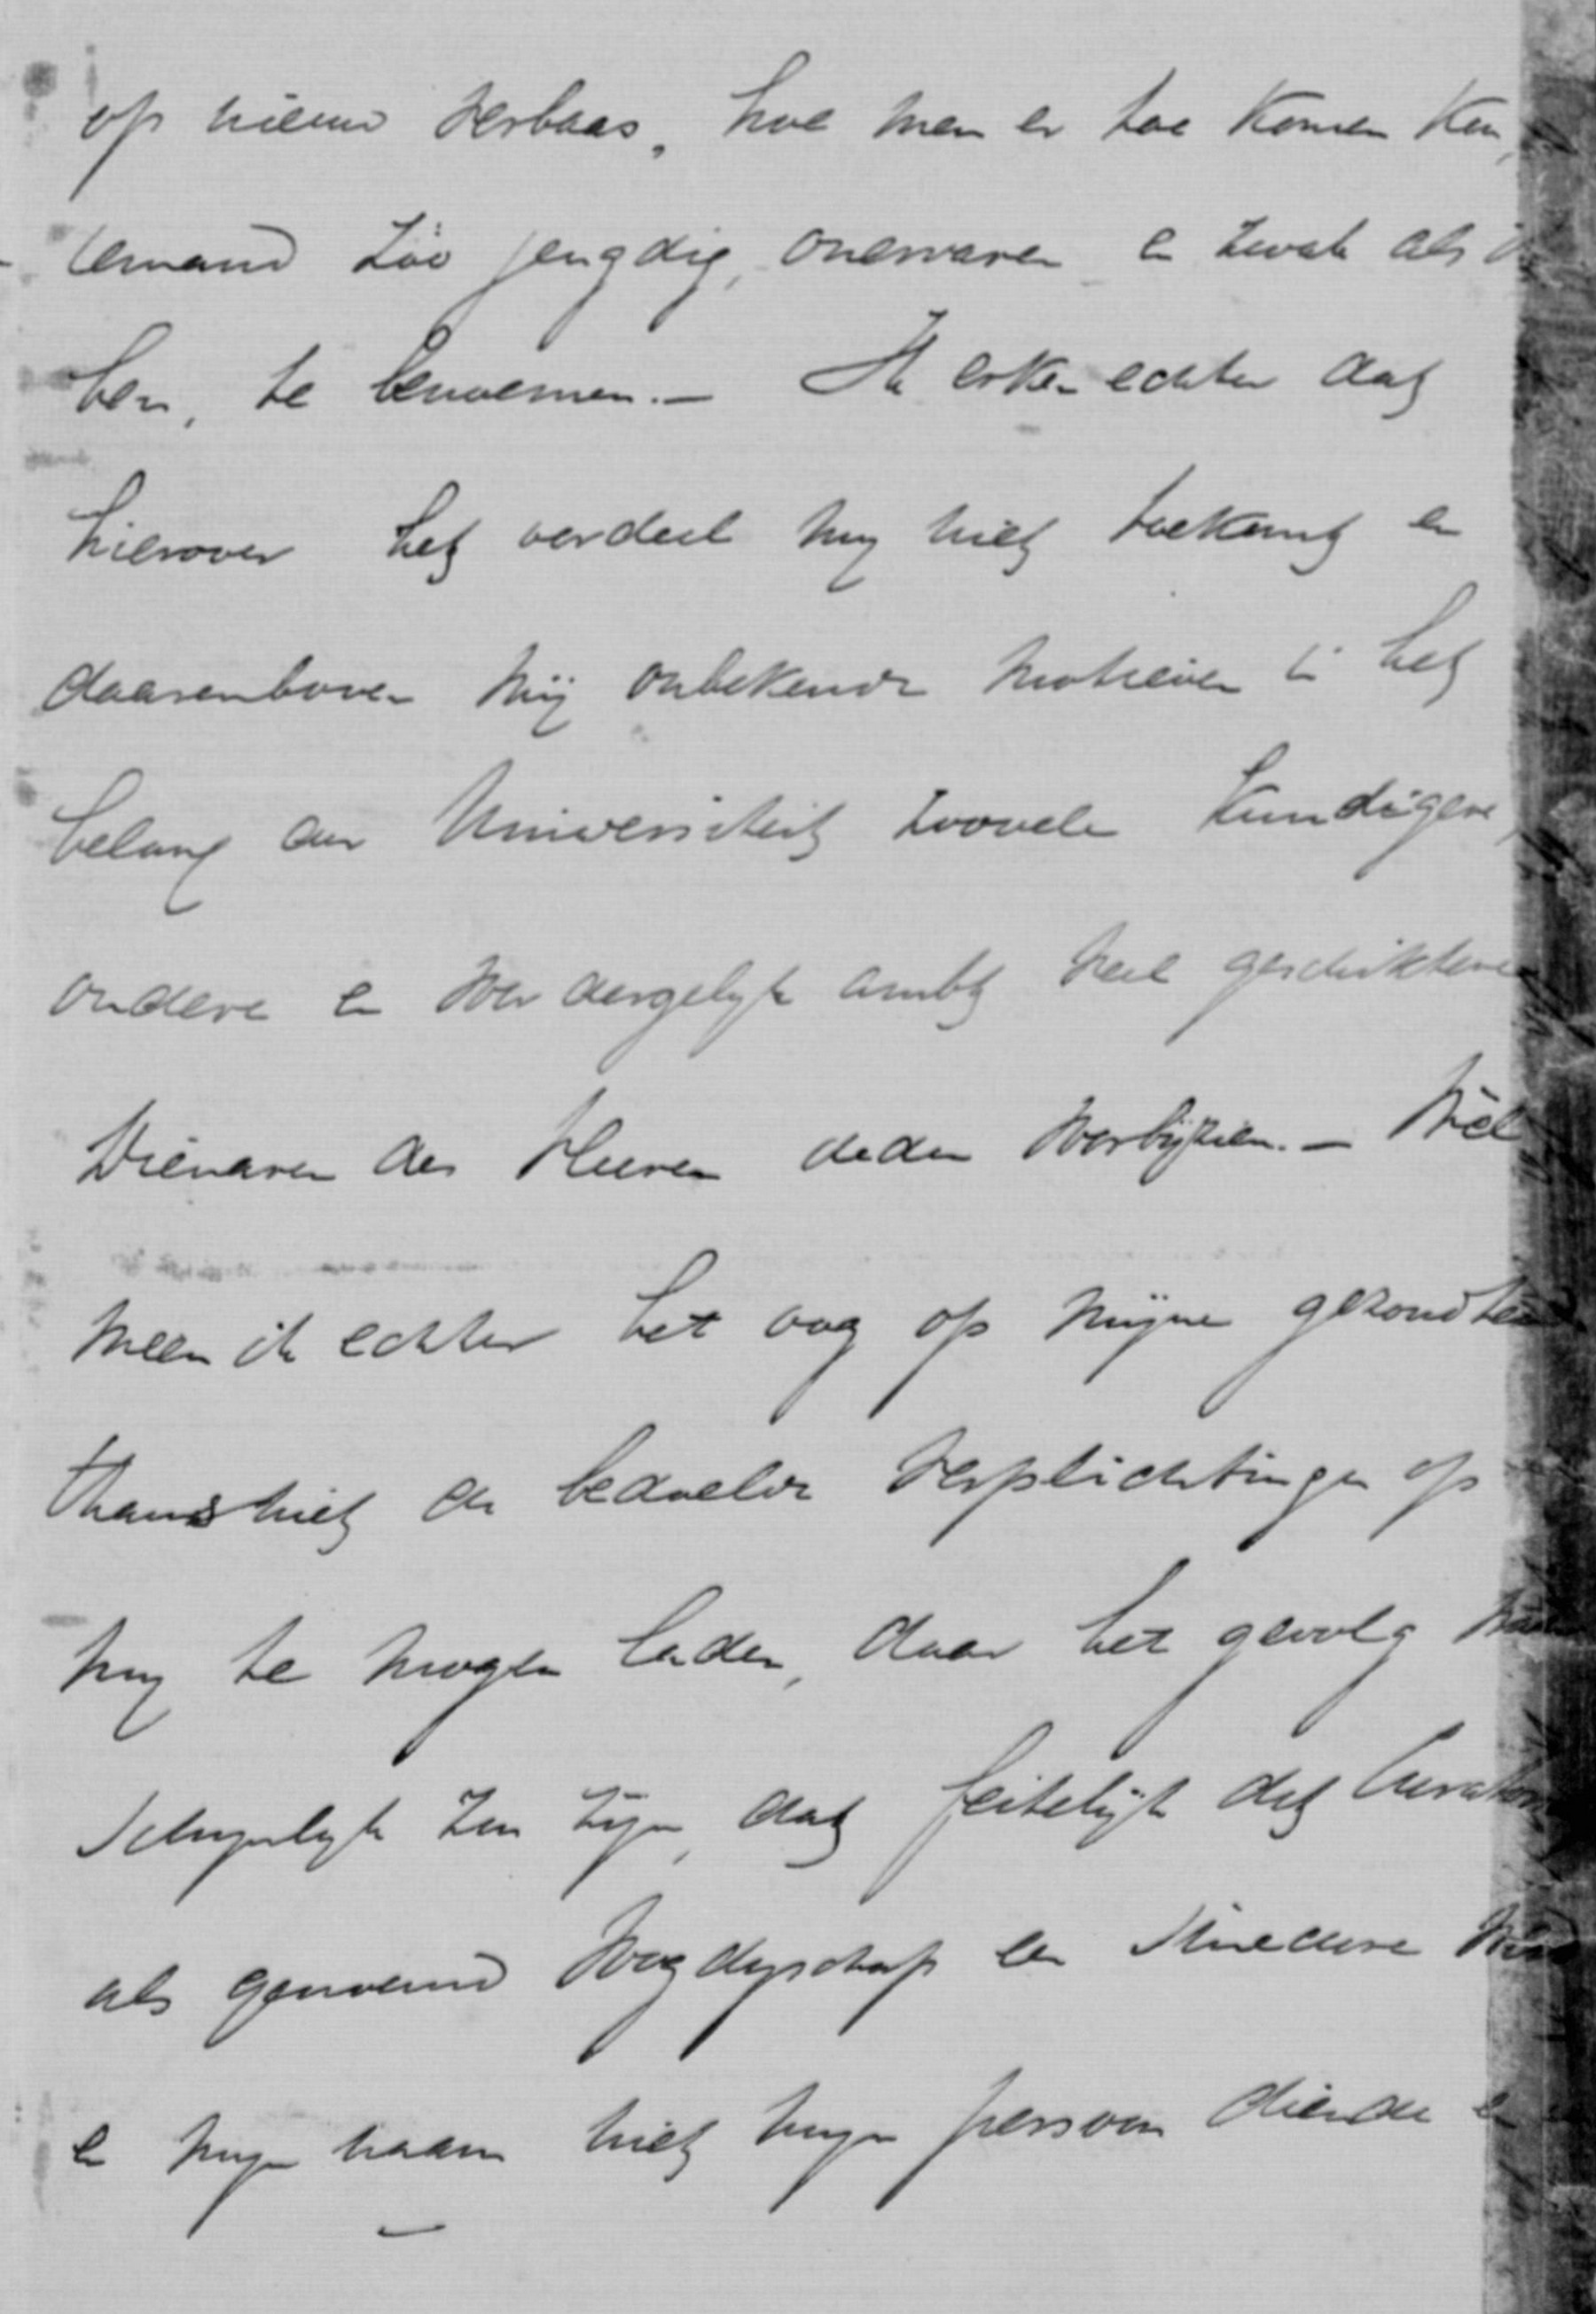 op nieuw verbaas, hoe men er toe komen kan,
iemand zóó jeugdig, onervaren en zwak als ik
ben, te benoemen. — Ik erken echter dat
hierover het oordeel my niet toekomt en
daarenboven mij onbekende motieven in het
belang der Universiteit zoovele kundigere,
oudere en voor dergelyk ambt veel geschiktere
Dienaren des Heeren deden voorbijzien. — Wèl
meen ik echter het oog op mijne gezondheid
thans niet de bedoelde verplichtingen op
my te mogen laden, daar het gevolg
schynlyk zou zyn, dat feitelijk dit Curatorium
als genoemd Voogdyschap en Studeere
en myn naam niet myn persoon diende en